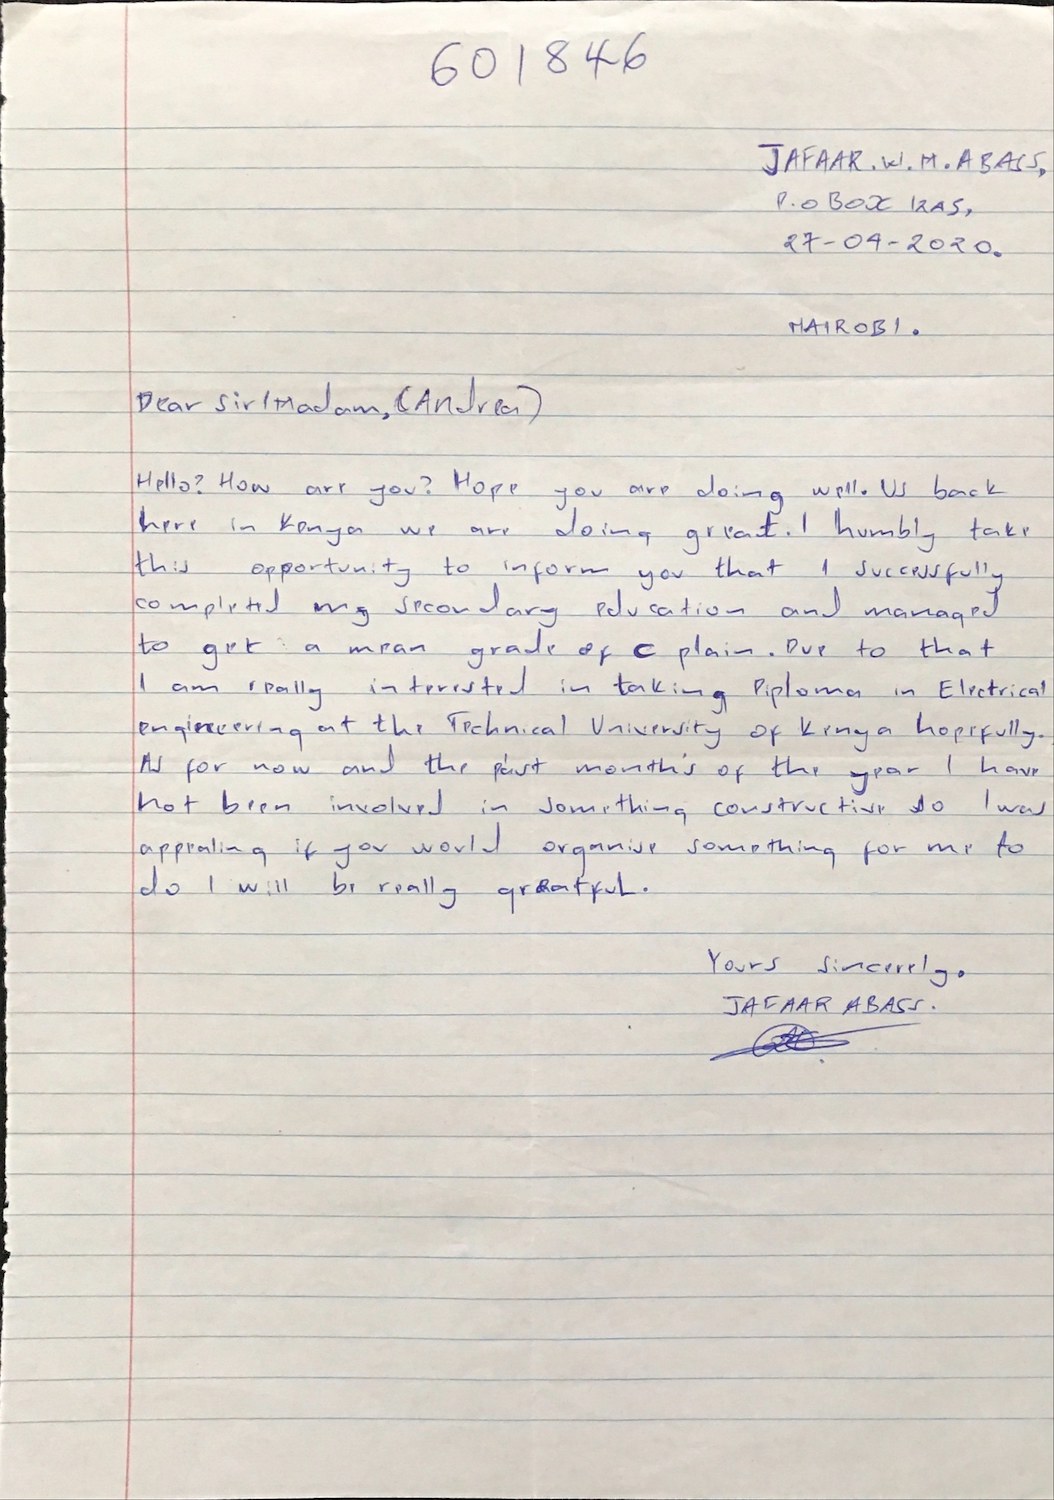 601846
JAFAAR.W.M.ABASS,
P.O BOX
27-04-2020.
NAIROBI.
Dear Sir/Madam, (Andrea)
Hello? How are you? Hope you are doing well. Us back
here in Kenya we are doing great. I humbly take
this opportunity to inform you that I successfully
completed my secondary education and managed
to get a mean grade of C plain. Due to that
I am really interested in taking Diploma in Electrical
engineering at the Technical University of Kenya hopefully.
As for now and the past month's of the year I have
not been involved in something constructive so I was
appealing if you would organise something for me to
do I will be really greatful.
Yours sincerely.
JAFAAR ABASS.